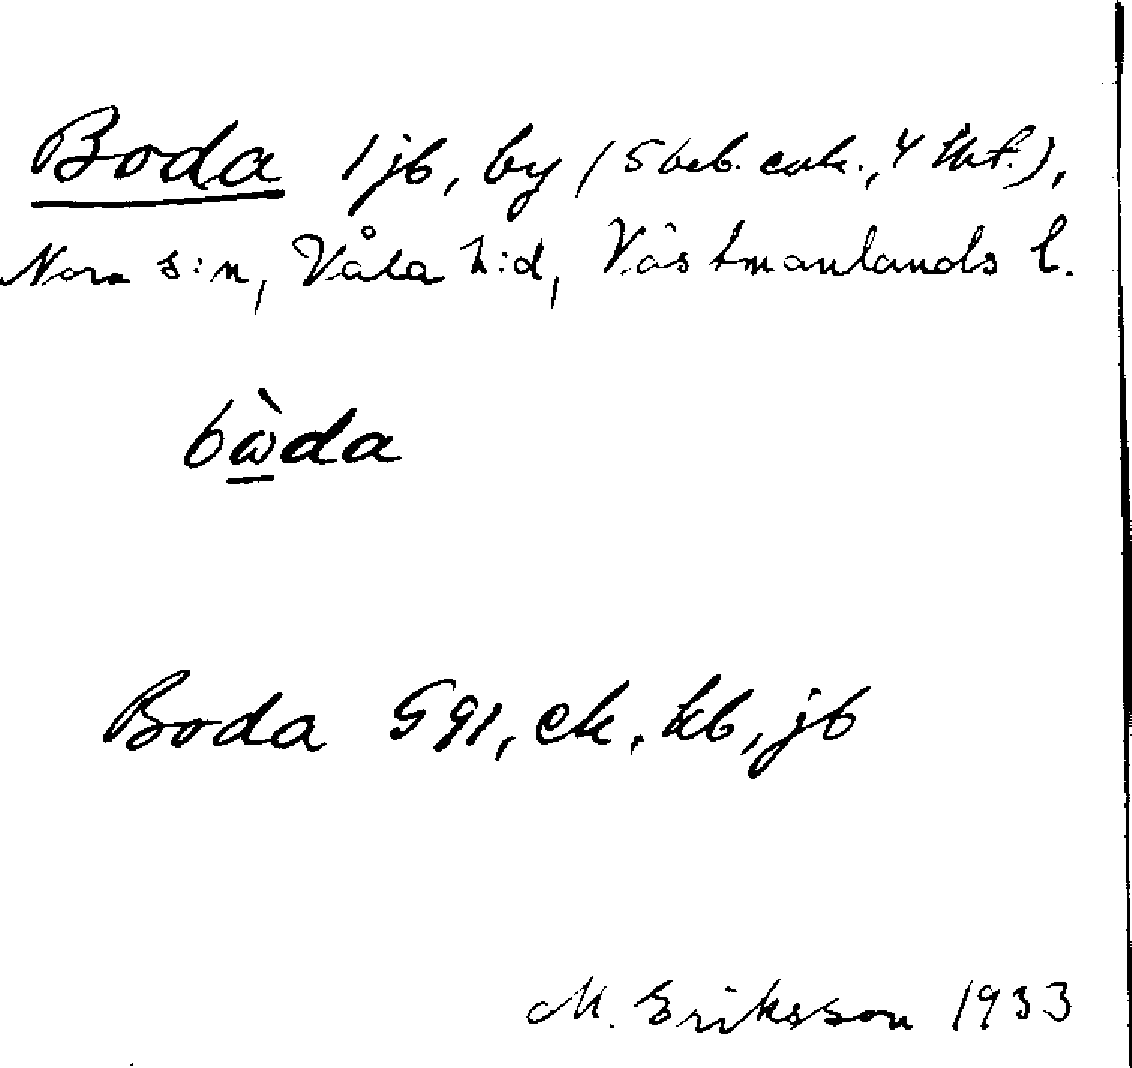 Boda 1 jb, by (5 beb. enh., 4 tkt.),
Nora s:n, Våla h:d, Västmanlands l.
bὼ̲da
Boda 5 gl, ek, kb, jb
M. Eriksson 1933